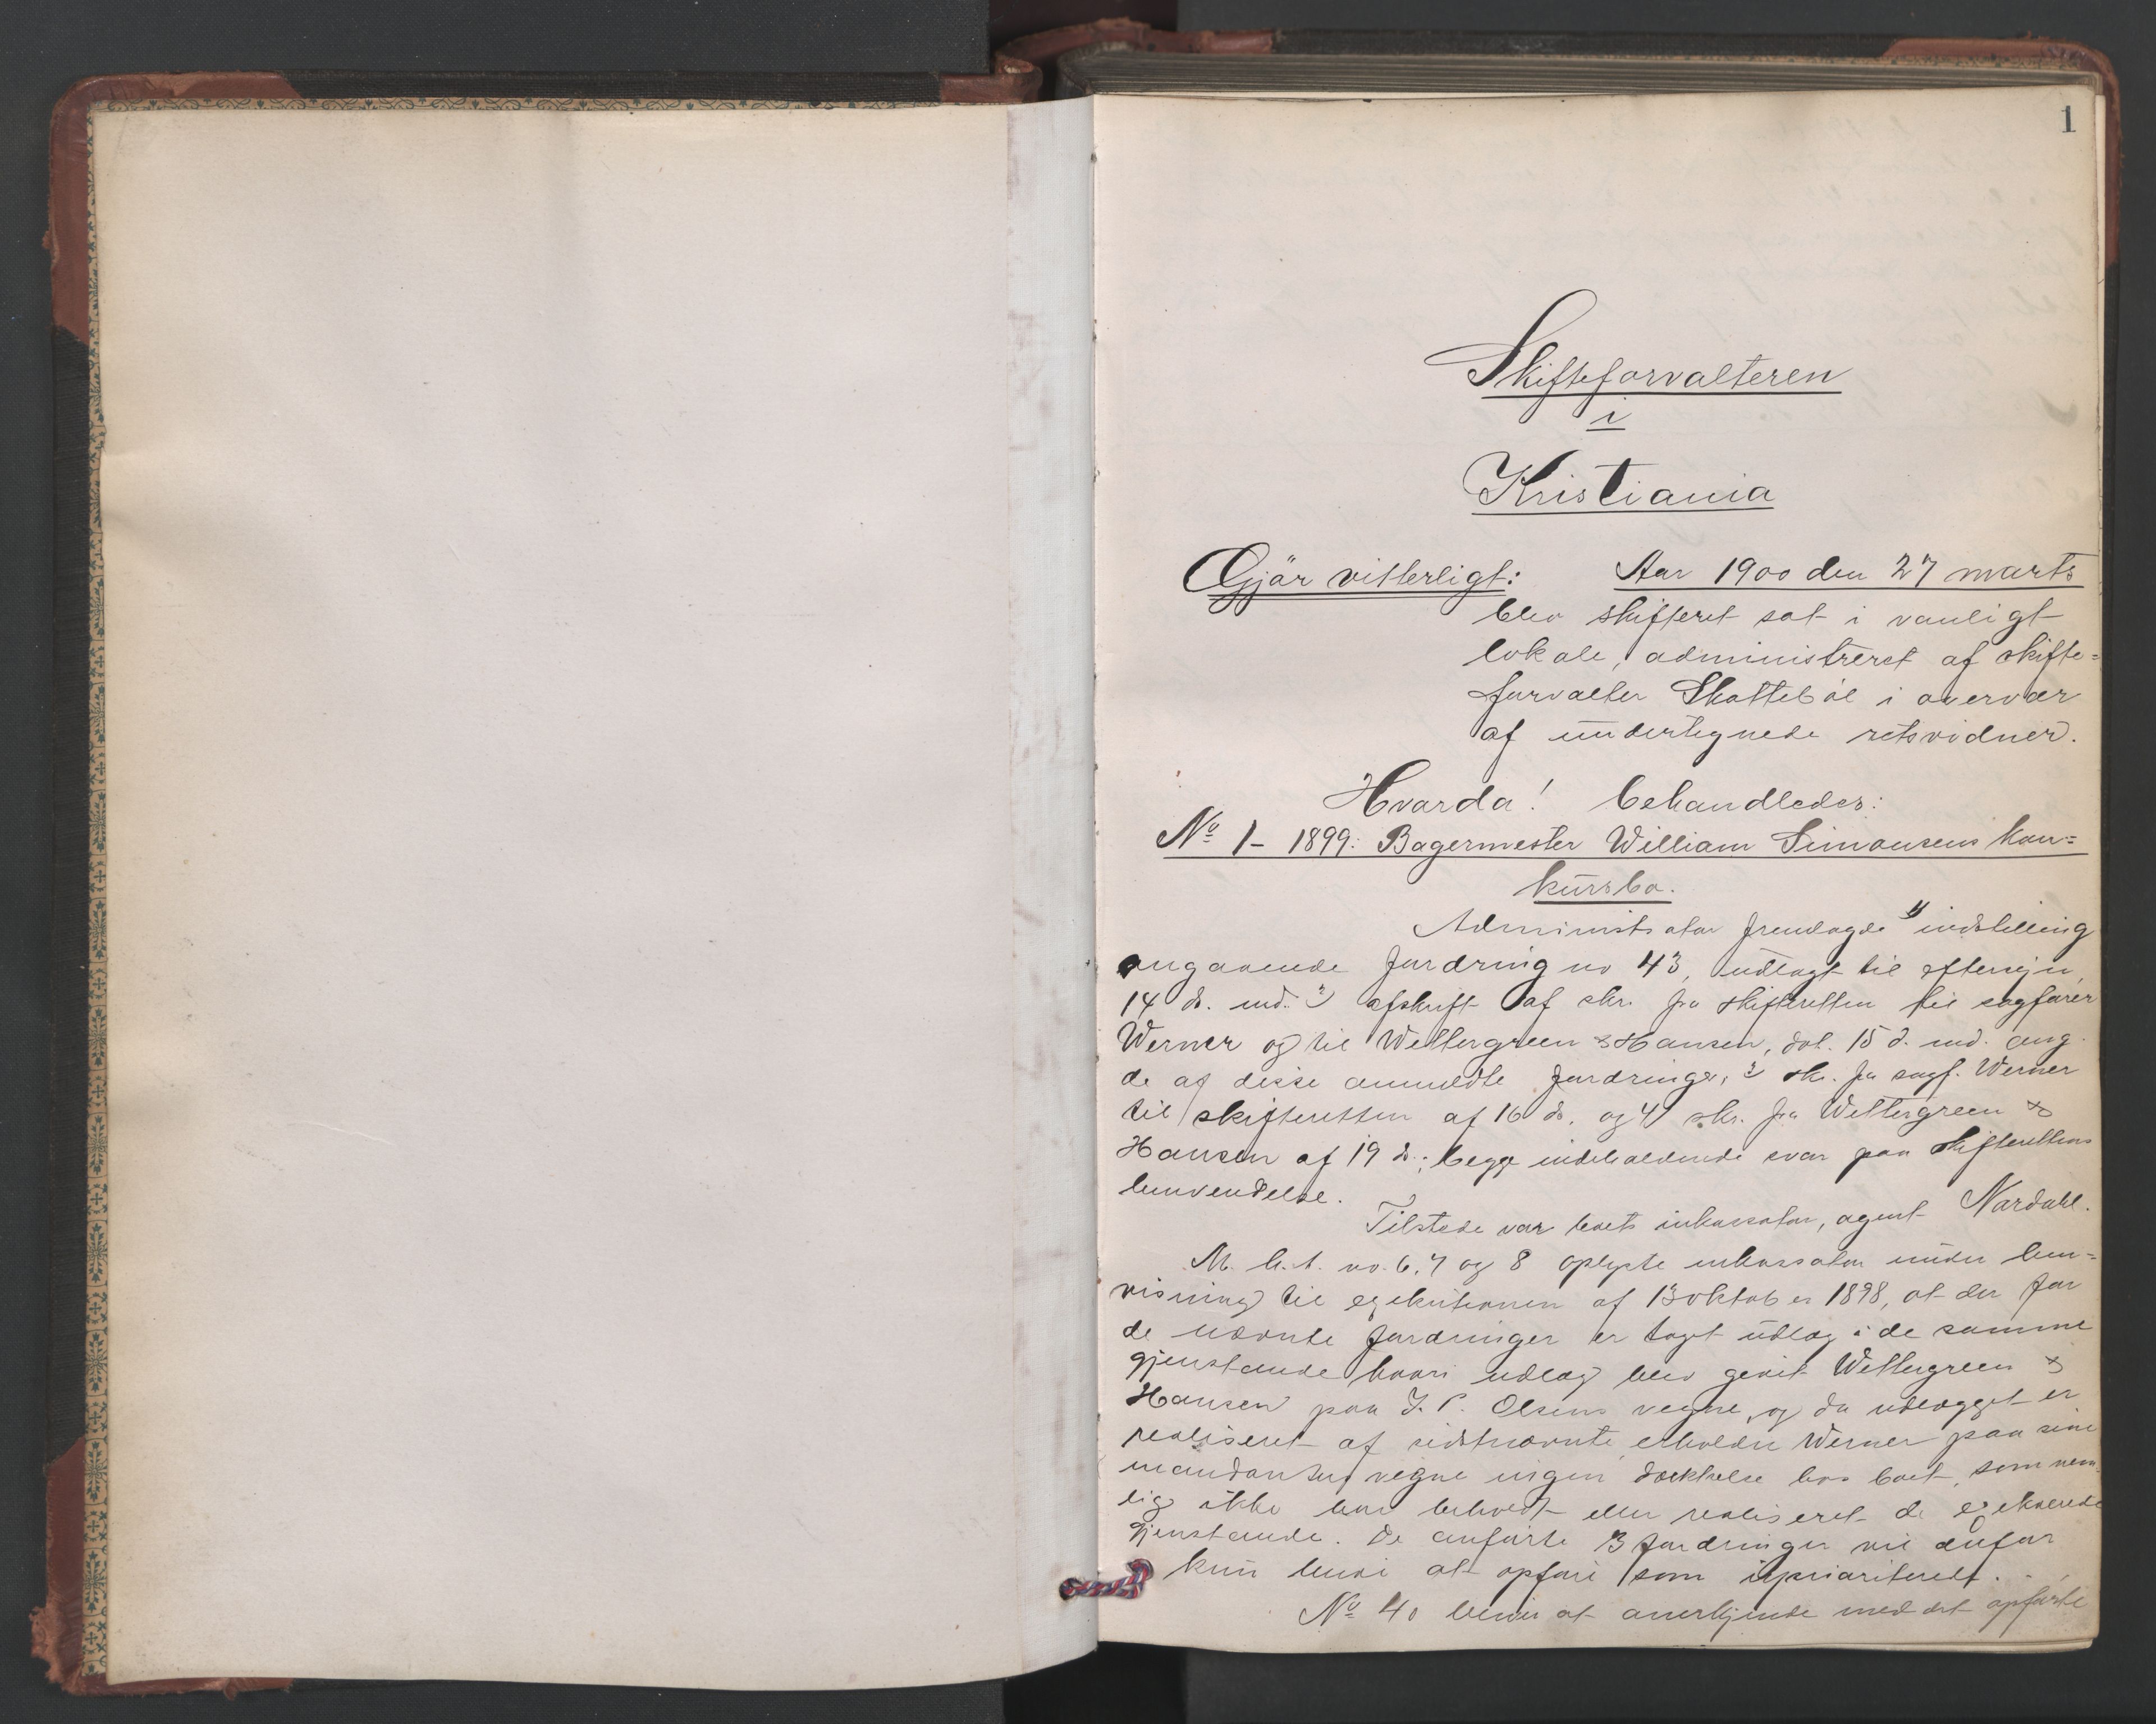 1
Skifteforvalteren
i
Kristiania
Gjör vitterligt: Aar 1900 den 27 marts
blev skifteret sat i vanligt
lokale, administreret af skifte=
forvalter Skattebøl i overvær
af undertegnede retsvidner.
Hvorda! behandledes:
No 1 - 1899: Bagermester William Simonsens kon=
kursbo.
Administrator fremlagde 1) indstilling
angaaende fordring no 43, udlagt til eftersyn
14 ds. md. 2) afskrift af skr. fra skifteretten til sagfører
Werner og til Wettergreen & Hansen, dat. 15 d. md. ang.
de af disse anmeldte fordringer, 3) skr. fra sagf. Werner
til skifteretten af 16 ds. og 4) skr. fra Wettergreen &
Hansen af 19 ds.; begge indeholdende svar paa skifterettens
henvendelse.
Tilstede var boets inkassator, agent Nardahl.
M. h. t. no. 6, 7 og 8 oplyste inkassator under hen=
visning til exekutionen af 13 oktober 1898, at der for
de nævnte fordringer er taget udlæg i de samme
gjenstande hvori udlæg blev givet Wettergreen &
Hansen paa J. P. Olsens vegne, og da udlægget er
realiseret af sidstnævnte, erholder Werner paa sine
mandanters vegne ingen dækkelse hos boet, som nem=
lig ikke har behvedt eller realiseret de exekverede
gjenstande. De anførte 3 fordringer vil derfor
kun blive at opføre som uprioriterede.
No 40 bliver at anerkjende med det opførte